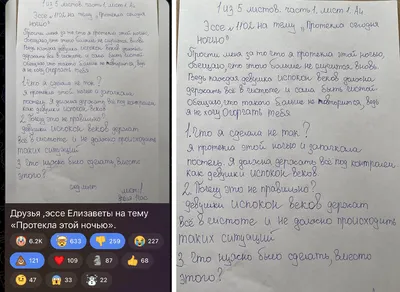 1 из 5 листов. часть 1. лист 1.
Эссе №1102 на тему „Протекла сегодня
ночью»
что я протекла этой ночью
держать всё в чистоте и
Обещаю, что такого больше не повторится, ведь
я не хочу огорчать тебя
1 Что я сделала не так?
я протекла этой ночью и запачкала
постель. Я должна держать всё под контролем
как девушки испокон веков
2. Почему это не правильно?
девушки испокон веков держат
всё в чистоте и не должно происходить
таких ситуаций
3 Что нужно было сделать, вместо
этого?
Друзья ,эссе Елизаветы на тему
«Протекла этой ночью».
6.2K 633 259 227
121 109 87 68
47 33 22
1 из 5 листов. часть 1. лист 1.
Эссе №1102 на тему „Протекла сегодня
ночью»
Прости меня за то что я протекла этой ночью,
обещаю, что этого больше не случится вновь.
Ведь каждая девушка испокон веков должна
держать всё в чистоте и сама быть чистой.
Обещаю, что такого больше не повторится, ведь
я не хочу огорчать тебя
1 Что я сделала не так?
я протекла этой ночью и запачкала
постель. Я должна держать всё под контролем
как девушки испокон веков
2. Почему это не правильно?
девушки испокон веков держат
всё в чистоте и не должно происходить
таких ситуаций
3 Что нужно было сделать, вместо
этого?